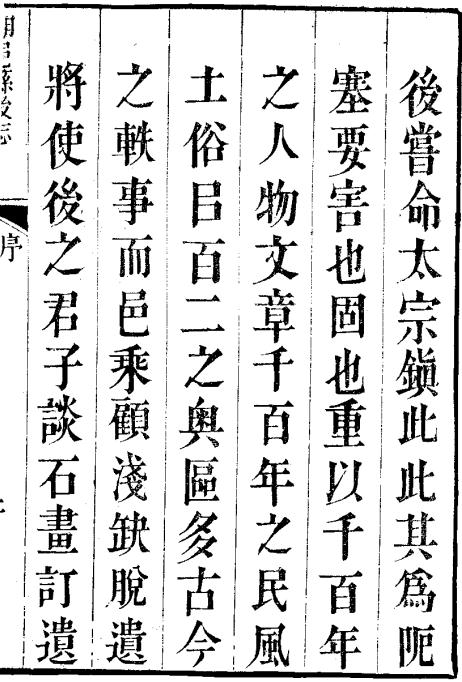 後嘗命太宗鎭此此其爲阨
塞要害也固也重以千百年
之人物文章千百年之民風
土俗㠯百二之奥區多古今
之軼事而邑乘顧淺缺脫遺
將使後之君子談石畫訂遺
縣後志
序